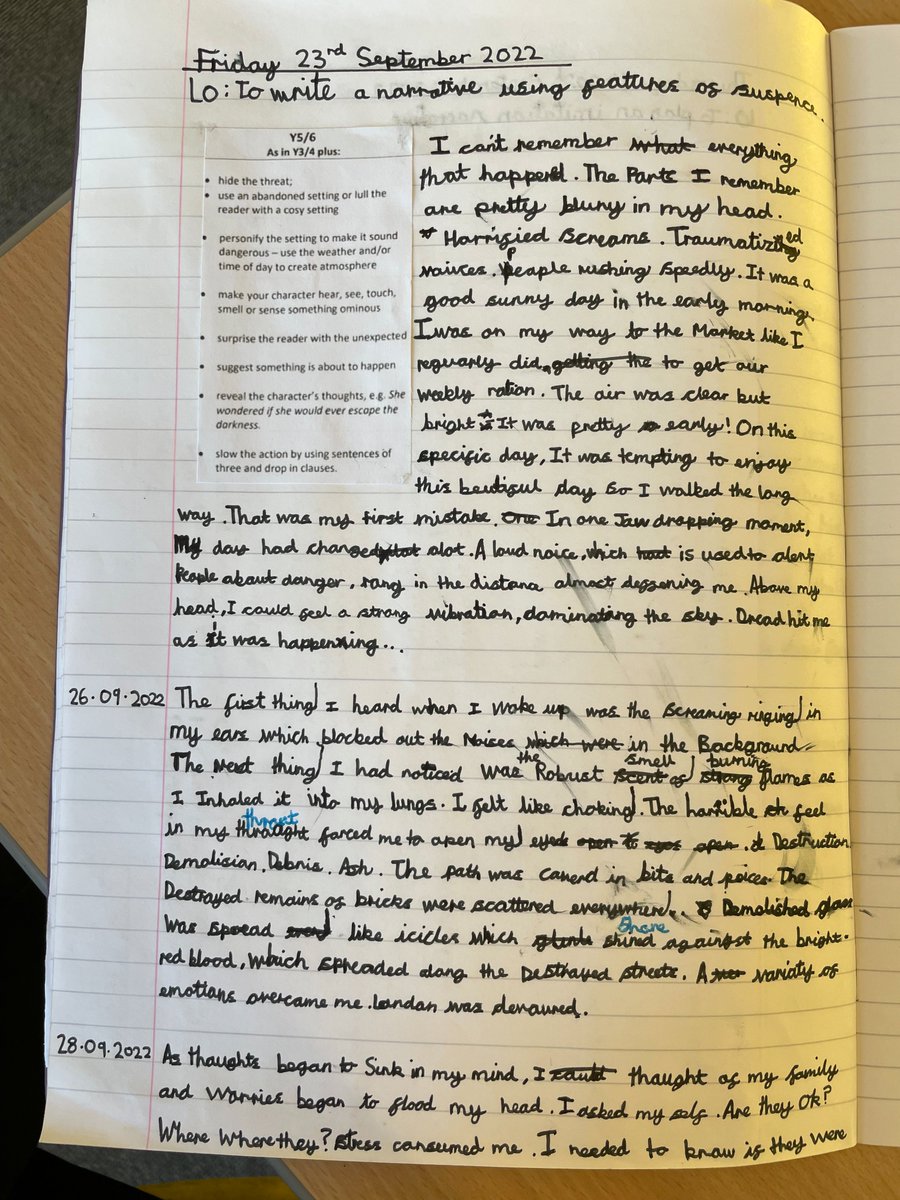 Friday 23rd September 2022
LO: To write a narrative using features of suspence.
Y5/6
As in Y3/4 plus:
• hide the threat;
• use an abandoned setting or lull the
reader with a cosy setting
• personify the setting to make it sound
dangerous – use the weather and/or
time of day to create atmosphere
• make your character hear, see, touch,
smell or sense something ominous
• surprise the reader with the unexpected
• suggest something is about to happen
• reveal the character's thoughts, e.g. She
wondered if she would ever escape the
darkness.
• slow the action by using sentences of
three and drop in clauses.
I can't remember what everything
that happend. The Parts I remember
are pretty blury in my head.
Harrified Screams. Traumatized
voices. People rushing speedly. It was a
good sunny day in the early morning,
I was on my way to the Market like I
reguarly did, getting the to get our
weekly ration. The air was clear but
bright. It was pretty early! On this
specific day, It was tempting to enjoy
this beutiful day so I walked the long
way. That was my first mistake. One In one Jaw dropping moment,
My day had changed alot. A loud noice, which had is used to alert
People about danger, rang in the distance almost deffening me. Above my
head, I could feel a strong vibration, dominating the sky. Dread hit me
as it was happening...
26.09.2022 The first thing I heard when I woke up was the screaming riging in
my ears which blocked out the Noises which were in the Background.
The next thing I had noticed was the Robust scent smell of strong burning flames as
I Inhaled it into my lungs. I felt like choking. The horrible feel
in my throught throat forced me to open my eyes open open. Destruction.
Demolision. Debris. Ash. The path was coverd in bits and peices. The
Destroyed remains of bricks were scattered everywhere. Demolished glass
was spread like icicles which shined Shone against the bright-
red blood, which spreaded along the Destroyed streets. A variaty of
emotions overcame me. London was devoured.
28.09.2022 As thoughts began to Sink in my mind, I could thought of my family
and worries began to flood my head. I asked my self. Are they Ok?
Where Where they? Stress consumed me. I needed to know if they were